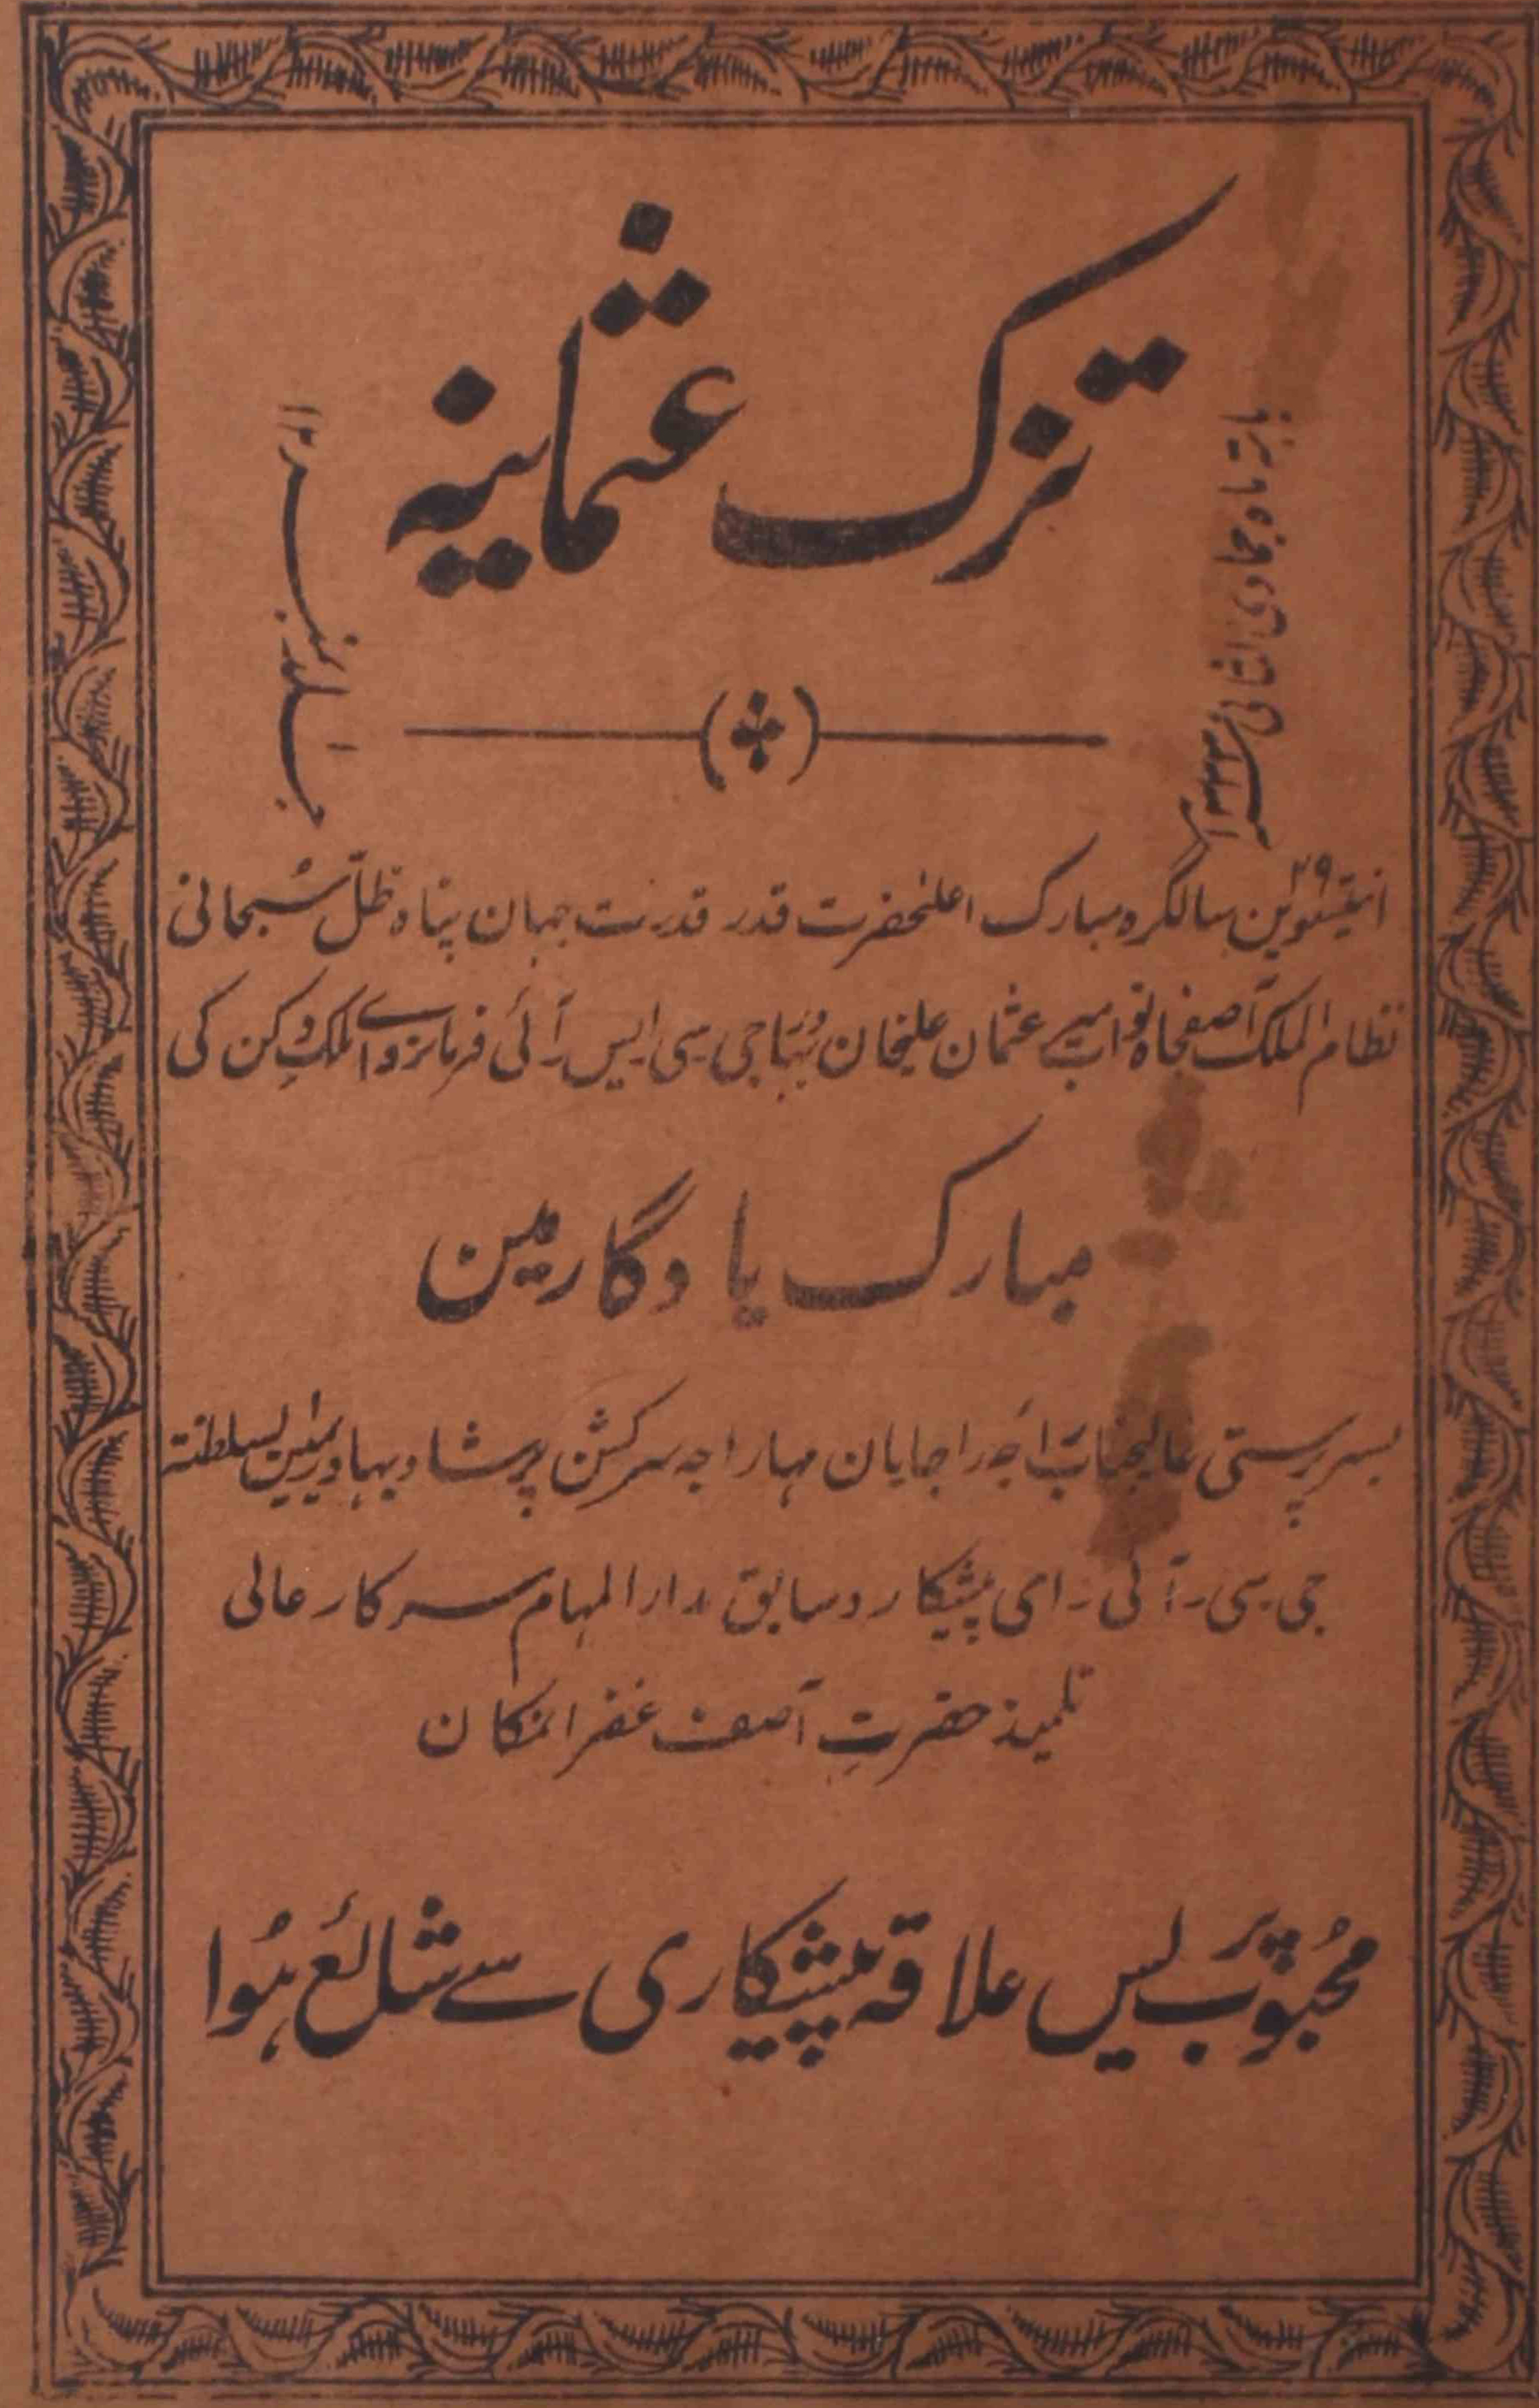 تزک عثمانیہ
بابتہ ماہ جمادی الثانی ۱۳۳۲ھ
جلد نمبر
انتیسوین ۲۹ سالگرہ مبارک اعلیٰحضرت قدر قدرت جہان پناہ ظلّ سُبحانی
نظام الملک آصفجاہ نواب میر عثمان علیخان بہادر جی سی ایس آئی فرمانروائے ملکِ دکن کی
مبارک یادگار مین
بسرپرستی عالیجناب راجۂ راجایان مہاراجہ سرکشن پرشاد بہادر یمین السلطنتہ
جی ۔سی ۔آئی ۔ای پیشکار و سابق مدارالمہام سرکار عالی
تلمیذ حضرتِ آصف غفرانمکان
محبُوب پریس علاقہ پیشکاری سے شائع ہُوا